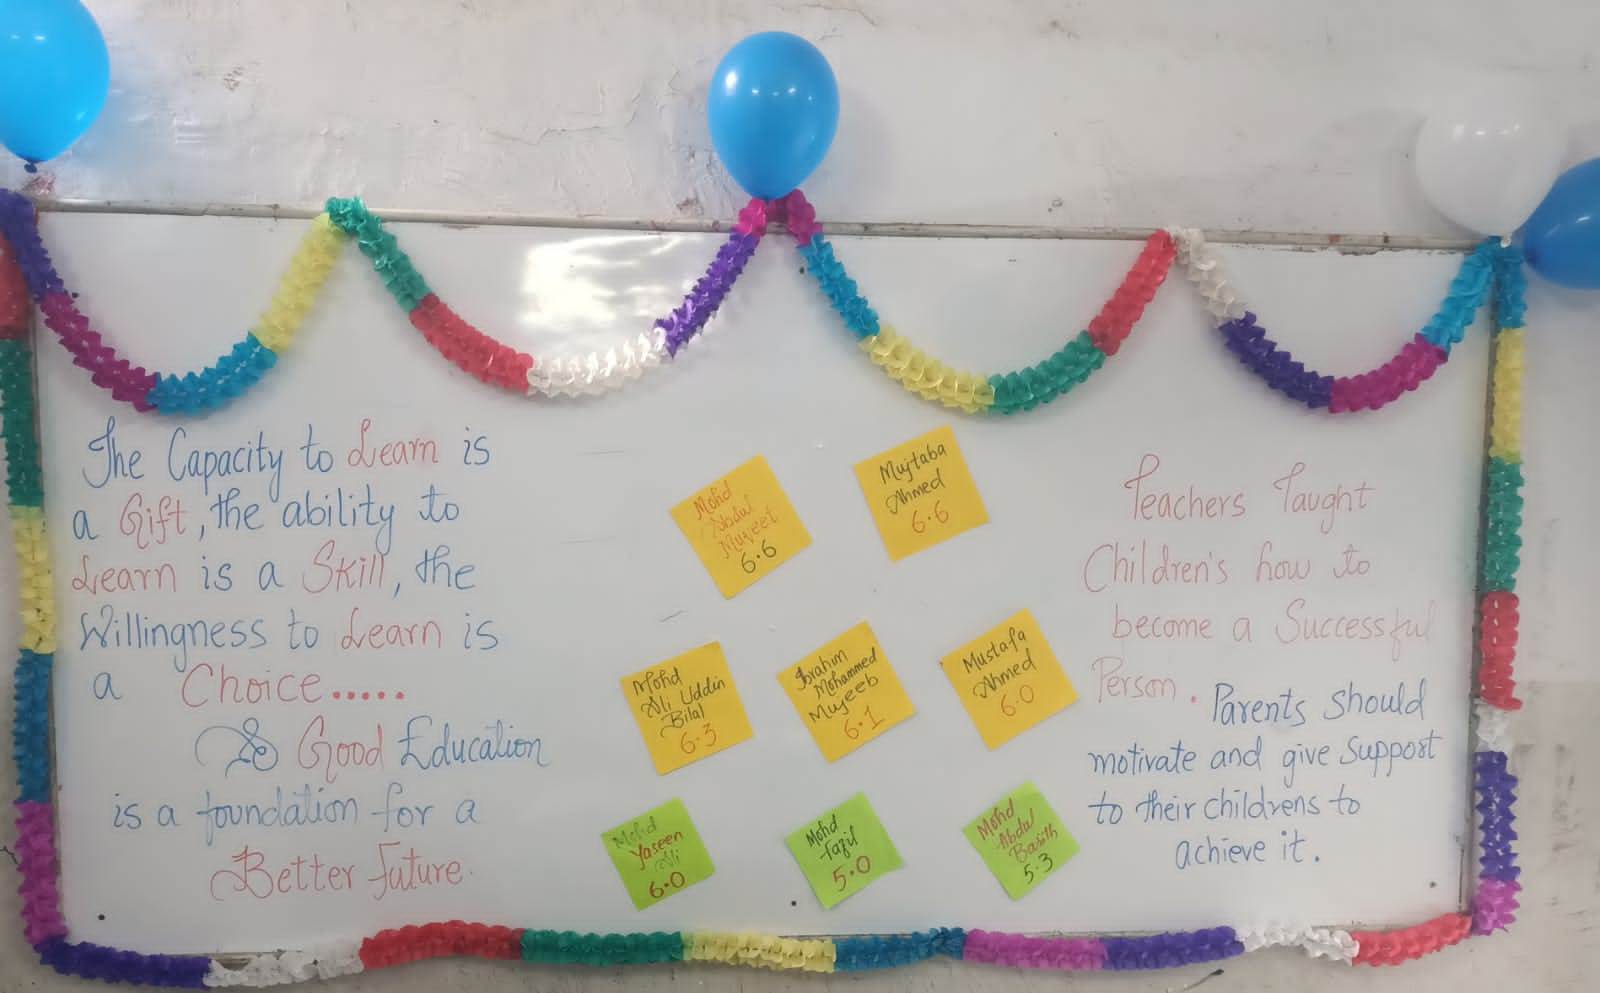 The Capacity to Learn is
a Gift, the ability to
Learn is a Skill, the
Willingness to Learn is
a Choice.....
A Good Education
is a foundation for a
Better Future.
Mohd
Abdul
Mujeet
6.6
Mujtaba
Ahmed
6.6
Mohd
Ali Uddin
Bilal
6.3
Ibrahim
Mohammed
Mujeeb
6.1
Mustafa
Ahmed
6.0
Mohd
Yaseen
Ali
6.0
Mohd
Fazil
5.0
Mohd
Abdul
Basith
5.3
Teachers Taught
Children's how to
become a Successful
Person.
Parents should
motivate and give support
to their childrens to
achieve it.